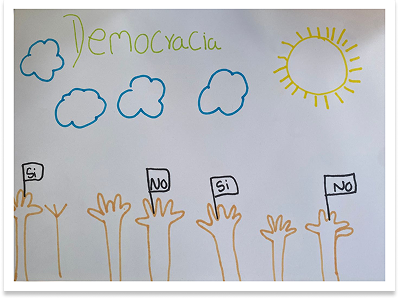 Democracia
Si
NO
Si
NO